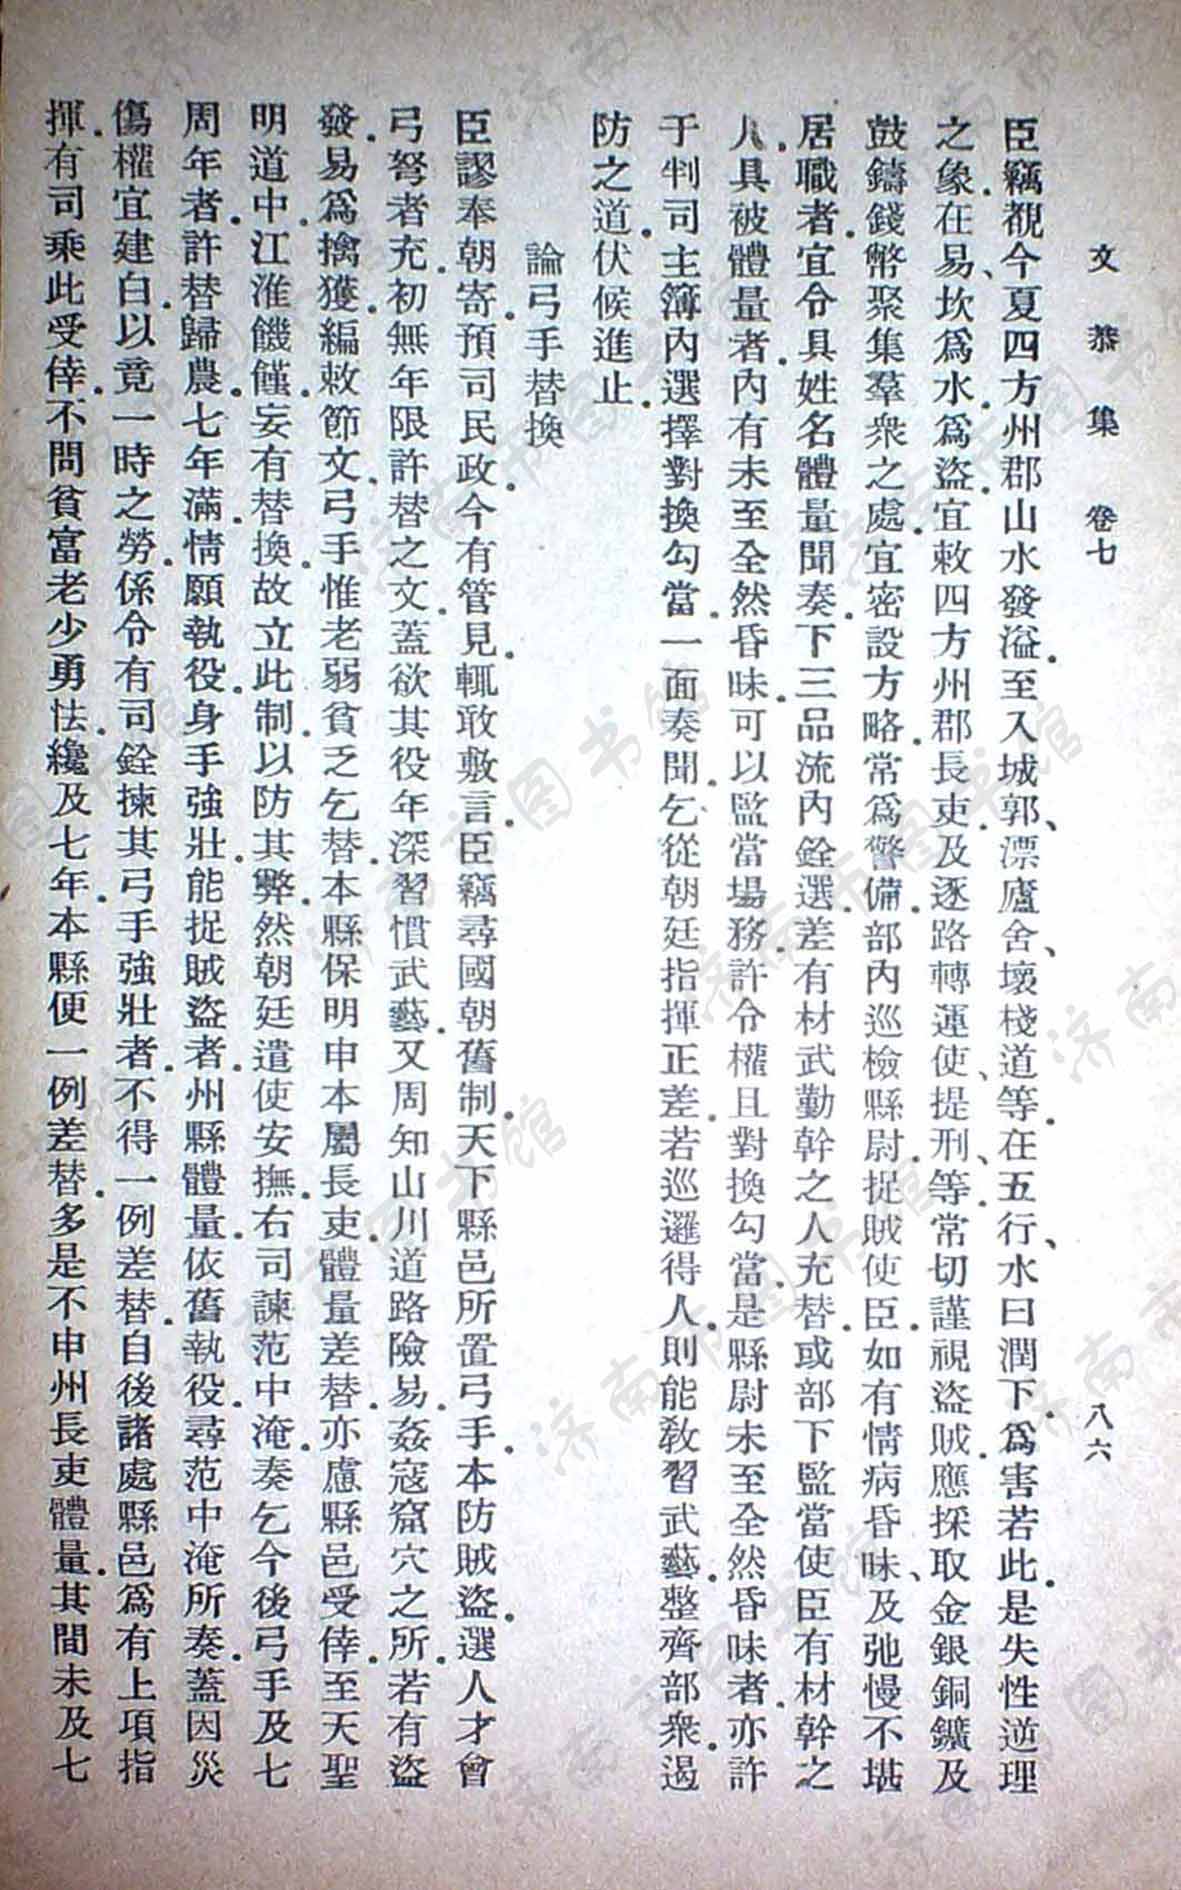 文恭集　卷七　八六
臣竊覩今夏四方州郡山水發溢．至入城郭、漂廬舍、壞棧道等．在五行、水曰潤下．爲害若此．是失性逆理
之象．在易、坎爲水．爲盜．宜敕四方州郡長吏．及逐路轉運使、提刑、等．常切謹視盜賊．應採取金銀銅鑛及
鼓鑄錢幣聚集羣衆之處．宜密設方略．常爲警備．部內巡檢縣尉．捉賊使臣．如有情病昏昧、及弛慢不堪
居職者．宜令具姓名體量聞奏．下三品流內銓選．差有材武勤幹之人充替．或部下監當使臣有材幹之
人．具被體量者．內有未至全然昏昧．可以監當場務．許令權且對換勾當．是縣尉未至全然昏昧者．亦許
于判司主簿內選擇對換勾當．一面奏聞．乞從朝廷指揮正差．若巡邏得人．則能敎習武藝．整齊部衆．遏
防之道．伏候進止．
論弓手替換
臣謬奉朝寄．預司民政．今有管見．輒敢敷言．臣竊尋國朝舊制．天下縣邑所置弓手．本防賊盜．選人才會
弓弩者充．初無年限許替之文．蓋欲其役年深．習慣武藝．又周知山川道路險易．姦寇窟穴之所．若有盜
發．易爲擒獲．編敕節文．弓手惟老弱貧乏乞替．本縣保明申本屬長吏．體量差替．亦慮縣邑受倖．至天聖
明道中．江淮饑饉．妄有替換．故立此制．以防其弊．然朝廷遣使安撫．右司諫范中淹．奏乞今後弓手及七
周年者．許替歸農．七年滿．情願執役．身手強壯．能捉賊盜者．州縣體量．依舊執役．尋范中淹所奏．蓋因災
傷權宜建白．以竟一時之勞．係令有司銓揀其弓手強壯者．不得一例差替．自後諸處縣邑．爲有上項指
揮．有司乘此受倖．不問貧富老少勇怯．纔及七年．本縣便一例差替．多是不申州長吏體量．其間未及七